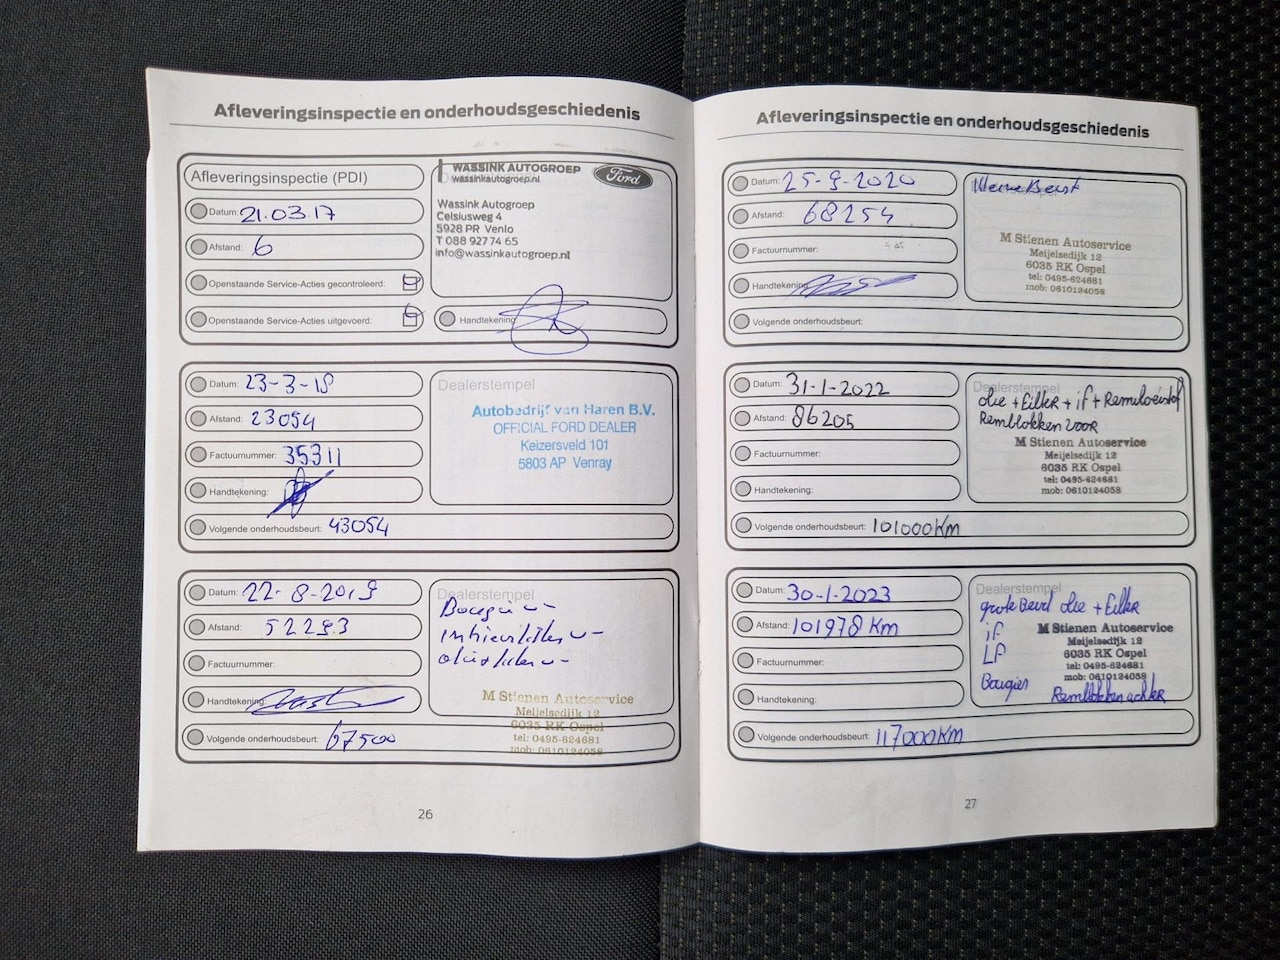 Afleveringsinspectie en onderhoudsgeschiedenis
Afleveringsinspectie (PDI)
Datum: 21.03.17
Afstand: 6
Openstaande Service-Acties gecontroleerd:
Openstaande Service-Acties uitgevoerd:
WASSINK AUTOGROEP
wassinkautogroep.nl
Ford
Wassink Autogroep
Celsiusweg 4
5928 PR Venlo
T 088 927 74 65
info@wassinkautogroep.nl
Handtekening:
Datum: 23-3-18
Afstand: 23054
Factuurnummer: 35311
Handtekening:
Volgende onderhoudsbeurt: 43054
Dealerstempel
Autobedrijf van Haren B.V.
OFFICIAL FORD DEALER
Keizersveld 101
5803 AP Venray
Datum: 22-8-2019
Afstand: 52293
Factuurnummer:
Handtekening:
Volgende onderhoudsbeurt: 67500
Dealerstempel
M Stienen Autoservice
Meijelsedijk 12
6035 RK Ospel
tel: 0495-624681
mob: 0610124058
26
Afleveringsinspectie en onderhoudsgeschiedenis
Datum: 25-9-2020
Afstand: 68254
Factuurnummer:
Handtekening:
Volgende onderhoudsbeurt:
kleine Beurt
M Stienen Autoservice
Meijelsedijk 12
6035 RK Ospel
tel: 0495-624681
mob: 0610124058
Datum: 31-1-2022
Afstand: 86205
Factuurnummer:
Handtekening:
Volgende onderhoudsbeurt: 101000Km
Dealerstempel
olie + FilteR + if + Remvloeistof
Remblokken vooR
M Stienen Autoservice
Meijelsedijk 12
6035 RK Ospel
tel: 0495-624681
mob: 0610124058
Datum: 30-1-2023
Afstand: 101978 Km
Factuurnummer:
Handtekening:
Volgende onderhoudsbeurt: 117000KM
Dealerstempel
grote Beurt olie + FilteR
if
LF
Bougies
M Stienen Autoservice
Meijelsedijk 12
6035 RK Ospel
tel: 0495-624681
mob: 0610124058
Remblokken achteR
27